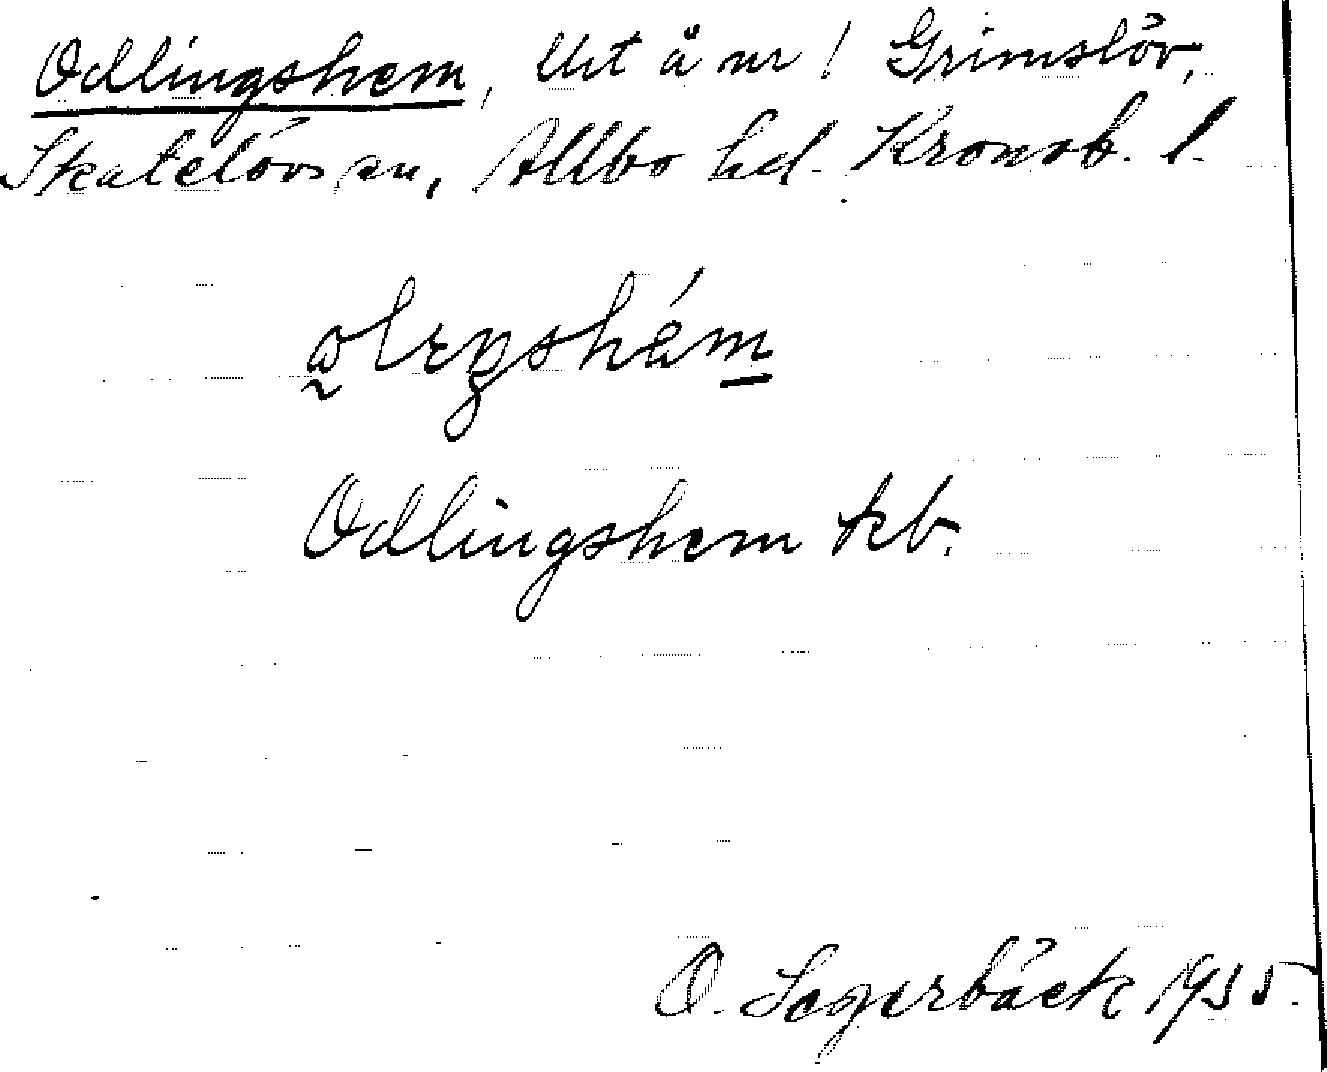 Odlingshem, Utt å nr 1 Grimslöv,
Skatelövs sn, Allbo hd. Kronob. l.
Odlingshem kb.
O. Segerbäck 1935.